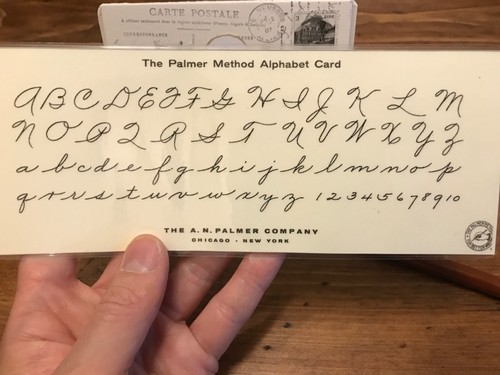 CARTE POSTALE
CORRESPONDANCE
The Palmer Method Alphabet Card
A B C D E F F G H I J K L M
N O P Q R S T U V W X Y Z
a b c d e f g h i j k l m n o p
q r r s t u v w x y z 1 2 3 4 5 6 7 8 9 10
THE A. N. PALMER COMPANY
CHICAGO • NEW YORK